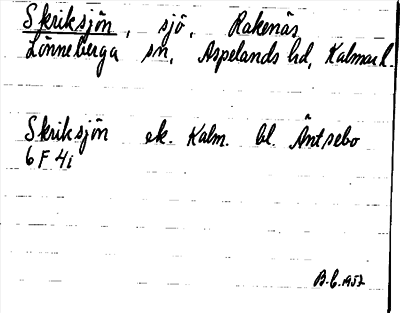 Skriksjön, sjö, Rakenäs
Lönneberga sn, Aspelands hd, Kalmar l.
Skriksjön ek. Kalm. bl. Äntsebo
6 F 4i
B.E. 1957